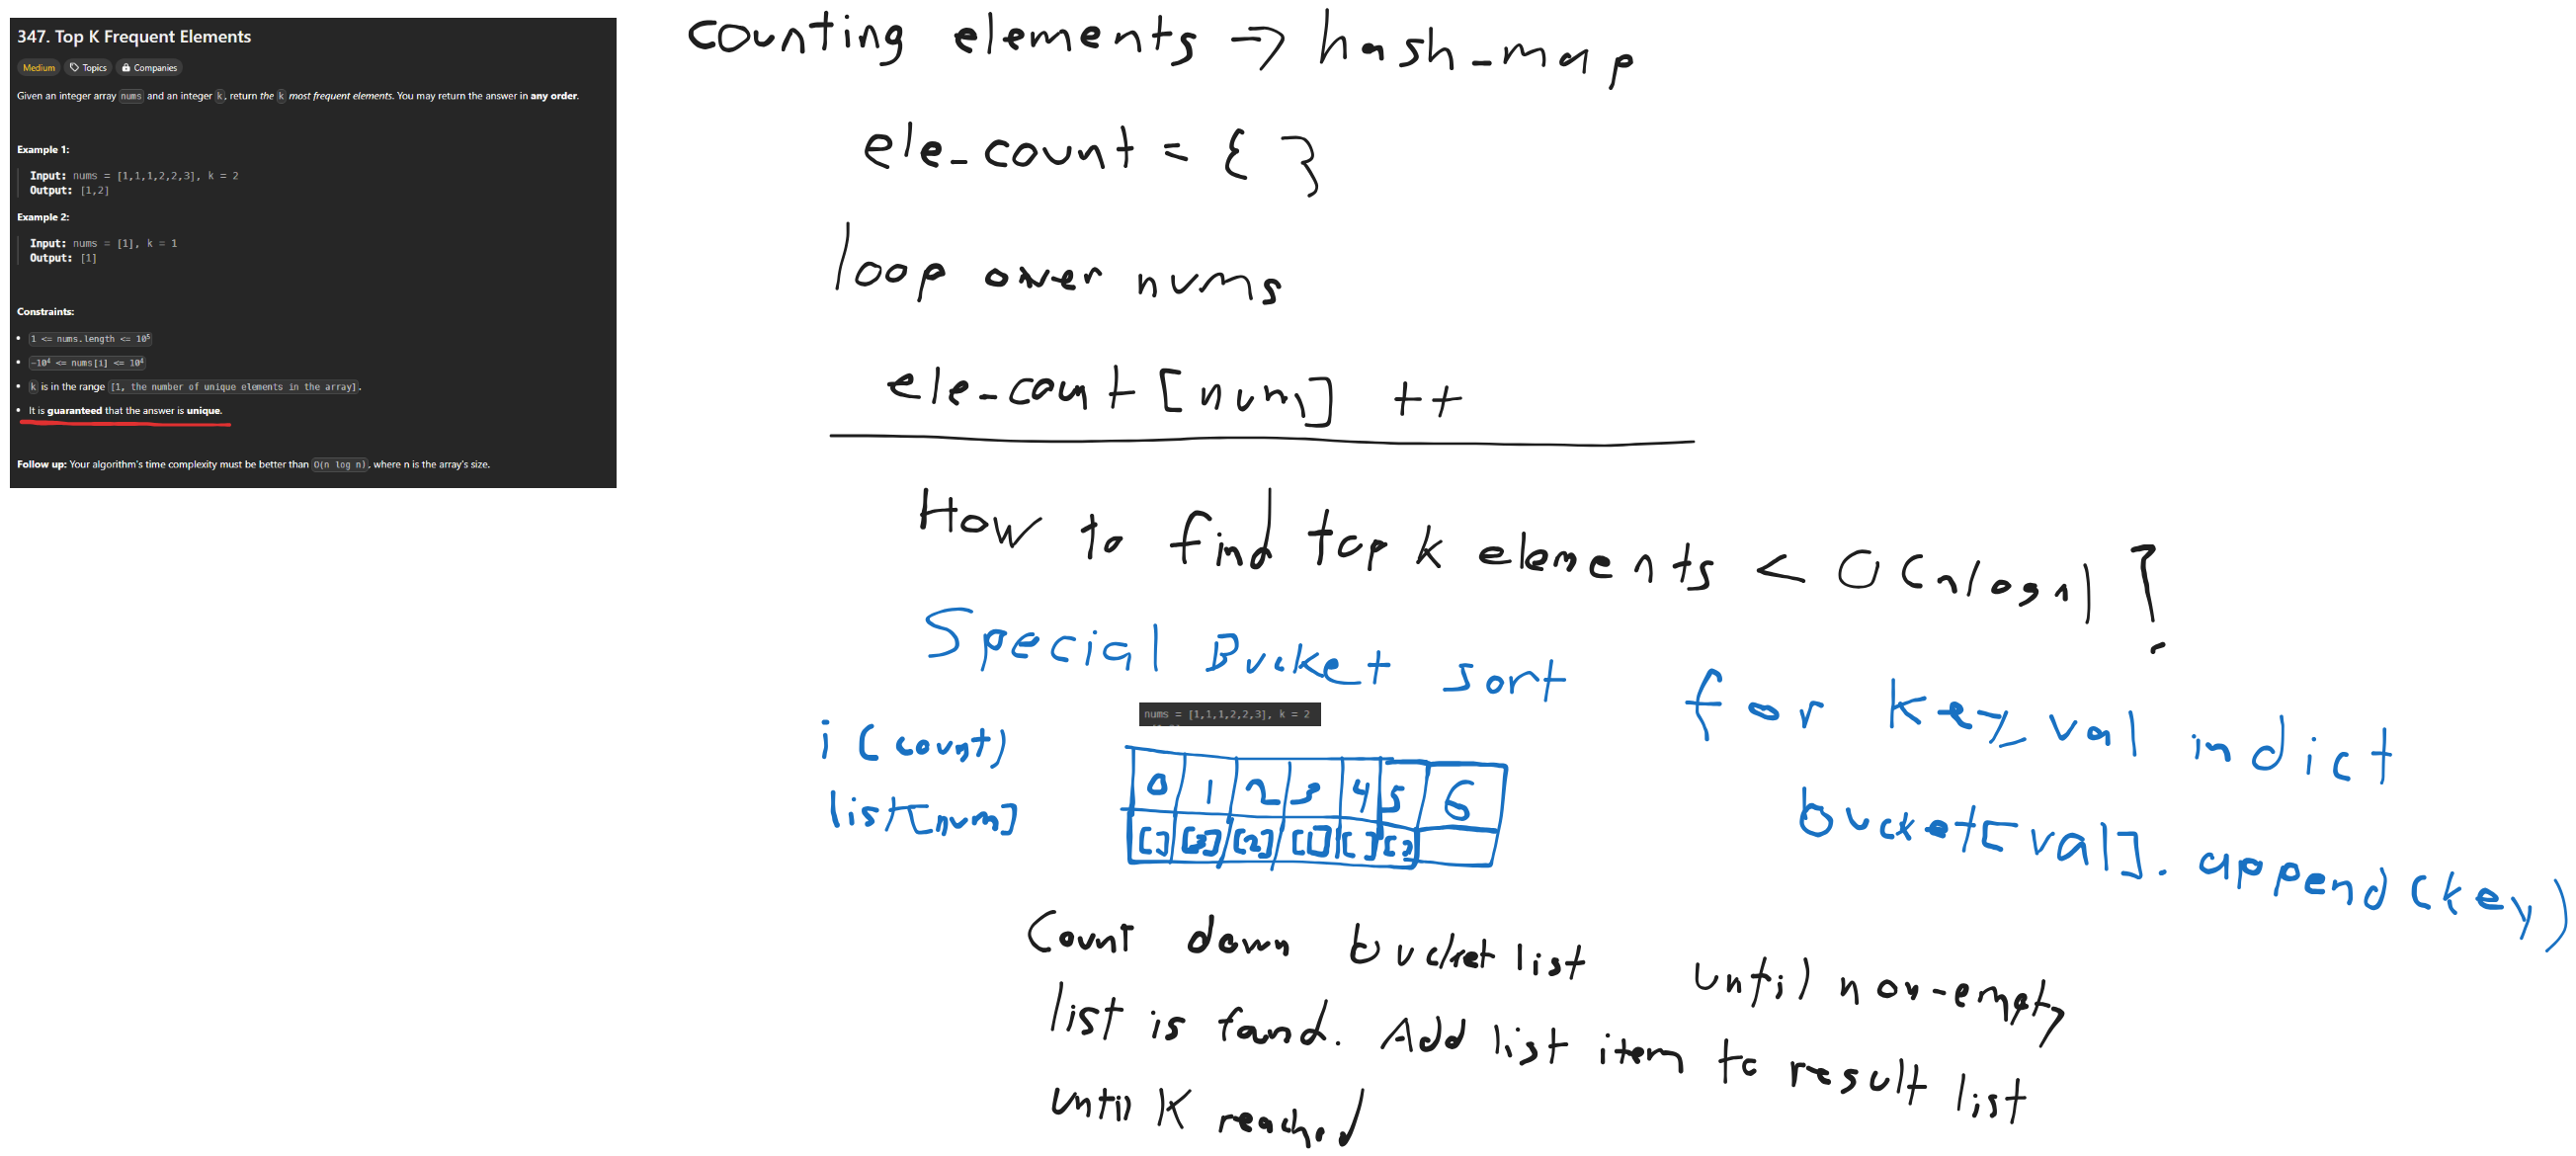 347. Top K Frequent Elements
Medium Topics Companies
Given an integer array nums and an integer k, return the k most frequent elements. You may return the answer in any order.
Example 1:
Input: nums = [1,1,1,2,2,3], k = 2
Output: [1,2]
Example 2:
Input: nums = [1], k = 1
Output: [1]
Constraints:
• 1 <= nums.length <= 10⁵
• -10⁴ <= nums[i] <= 10⁴
• k is in the range [1, the number of unique elements in the array].
• It is guaranteed that the answer is unique.
Follow up: Your algorithm's time complexity must be better than O(n log n), where n is the array's size.
counting elements -> hash_map
ele_count = { }
loop over nums
ele_count [num] ++
How to find top k elements < O(nlogn) ?
Special Bucket sort
nums = [1,1,1,2,2,3], k = 2
i (count)
0 1 2 3 4 5 6
list[num]
[] [3] [2] [1] [] []
for key, val in dict
bucket[val].append(key)
Count down bucket list until non-empty
list is found. Add list item to result list
until K reached